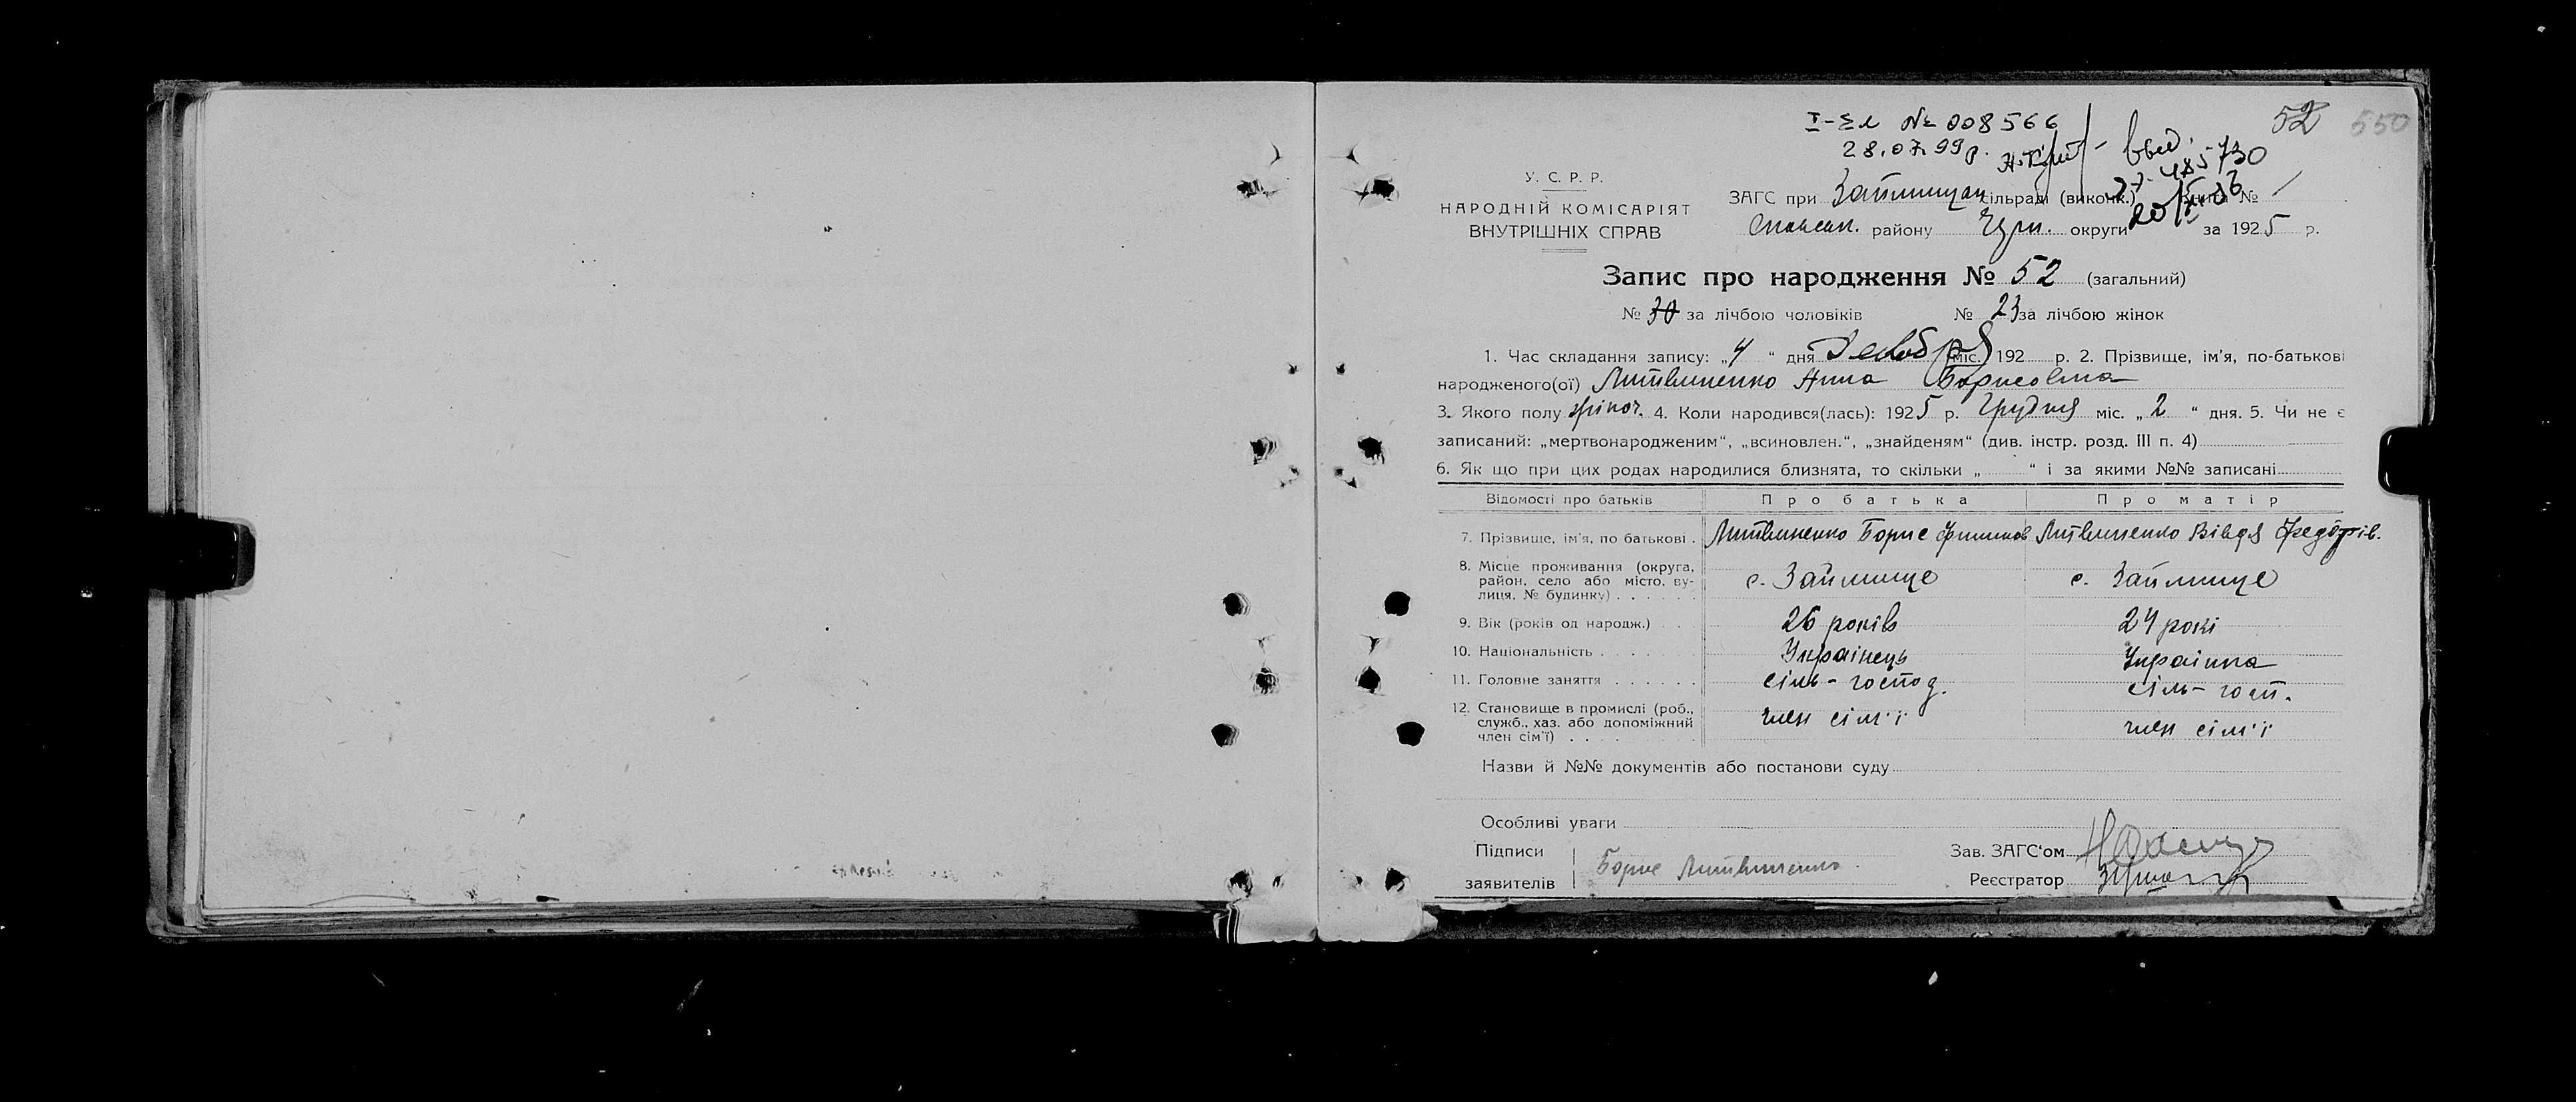 I-ЕЛ № 008566
28.07.99р.
52 550
У. С. Р. Р.
НАРОДНІЙ КОМІСАРІЯТ
ВНУТРІШНІХ СПРАВ
485730
ЗАГС при Займищан сільраді (виконк.) книга №
району округи за 1925 р.
Запис про народження № 52 (загальний)
№ 30 за лічбою чоловіків № 23 за лічбою жінок
1. Час складання запису: „4“ дня Декабря міс. 192 р. 2. Прізвище, ім'я, по-батькові
народженого(ої) Литвиненко Анна Борисовна
3. Якого полу жіноч. 4. Коли народився(лась): 1925 р. Грудня міс. „2“ дня. 5. Чи не є
записаний: „мертвонародженим“, „всиновлен.“, „знайденям“ (див. інстр. розд. III п. 4)
6. Як що при цих родах народилися близнята, то скільки „ “ і за якими №№ записані
Відомості про батьків Про батька Про матір
7. Прізвище, ім'я, по батькові . Литвиненко Борис Литвиненко Вівдя Федорів.
8. Місце проживання (округа, район, село або місто, вулиця, № будинку) . . . . . . с. Займище с. Займище
9. Вік (років од народж.) . . . 26 років 24 рокі
10. Національність . . . . . . Українець Українка
11. Головне заняття . . . . . . сіль-господ. сіль-госп.
12. Становище в промислі (роб., служб., хаз. або допоміжний член сім'ї) . . . . член сім'ї член сім'ї
Назви й №№ документів або постанови суду
Особливі уваги
Підписи заявителів Борис Литвиненко
Зав. ЗАГС'ом
Реєстратор